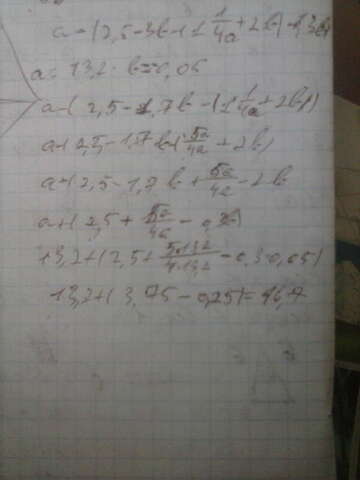 a-(2,5-3b-(1 1/4a+2b)-1,3b)
a=13,2 · b=0,05
a-(2,5-1,7b-(1 1/4a+2b))
a+(2,5-1,7b(5a/4a+2b)
a+(2,5-1,7b+5a/4a-2b
a+(2,5+5a/4a-0,3b)
13,2+(2,5+5·13,2/4·13,2-0,3·0,05)
13,2+(3,75-0,25)=16,7